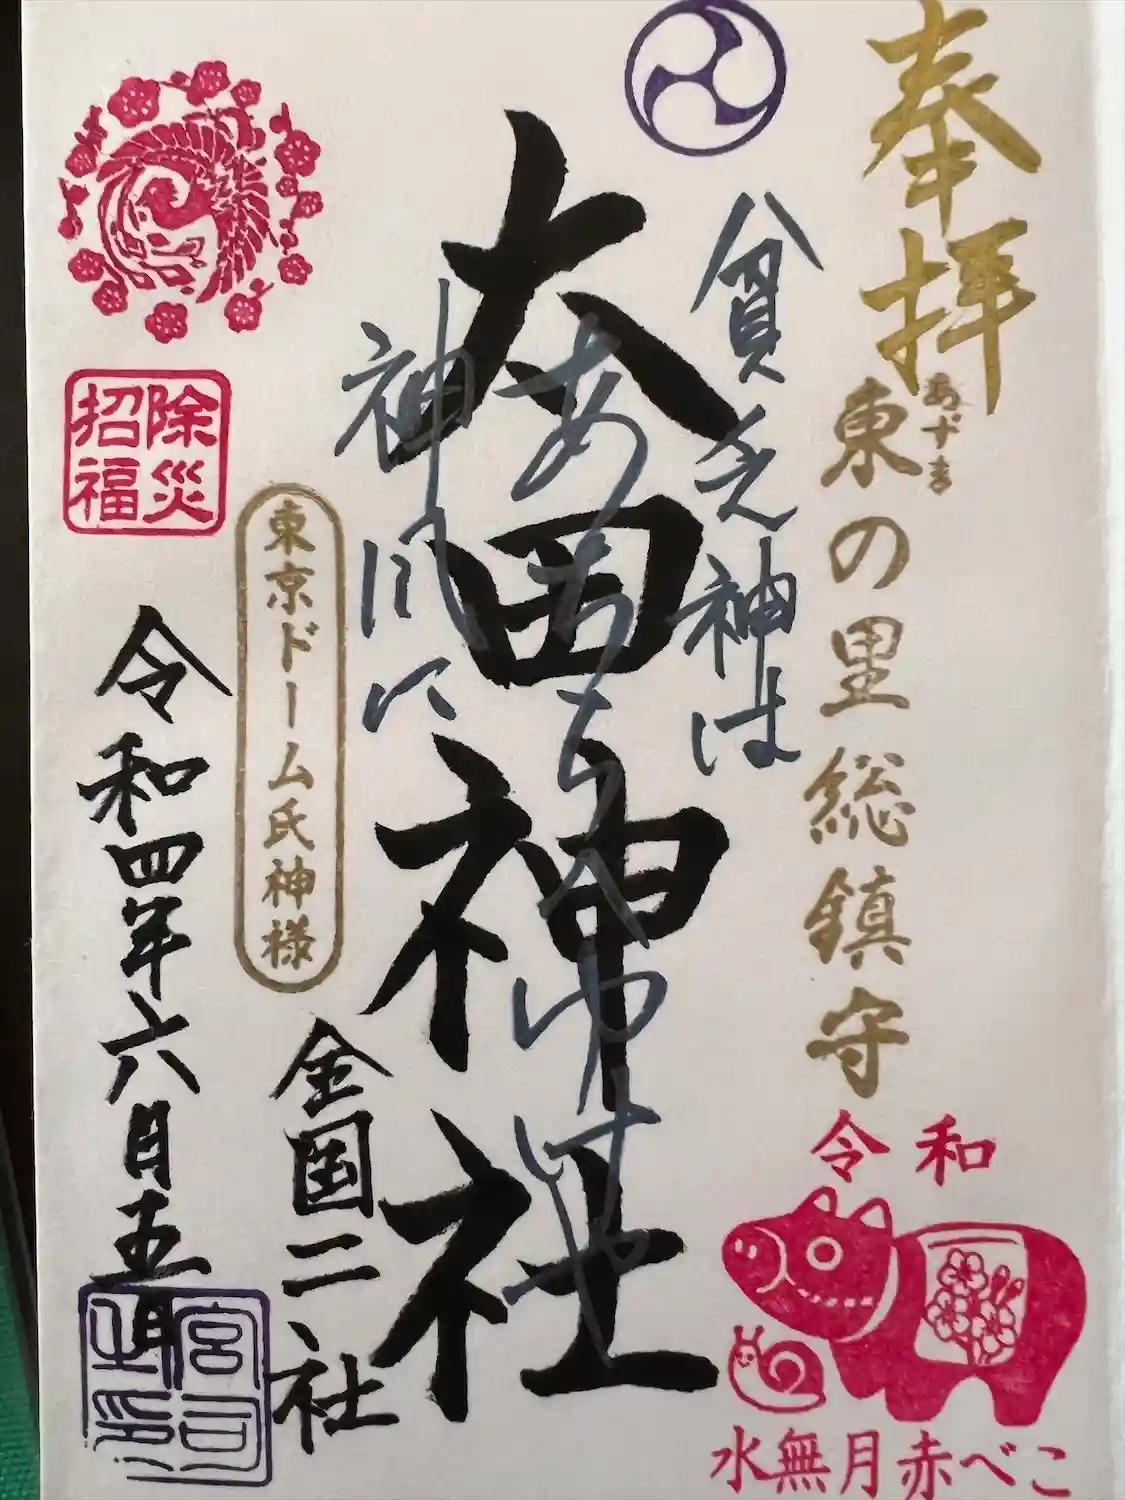 奉拝
東の里総鎮守
あずま
貧乏神は
あちらへゆけや
神風に
太田神社
除災
招福
東京ドーム氏神様
全国二社
令和四年六月五日
宮司
之印
令和
水無月赤べこ